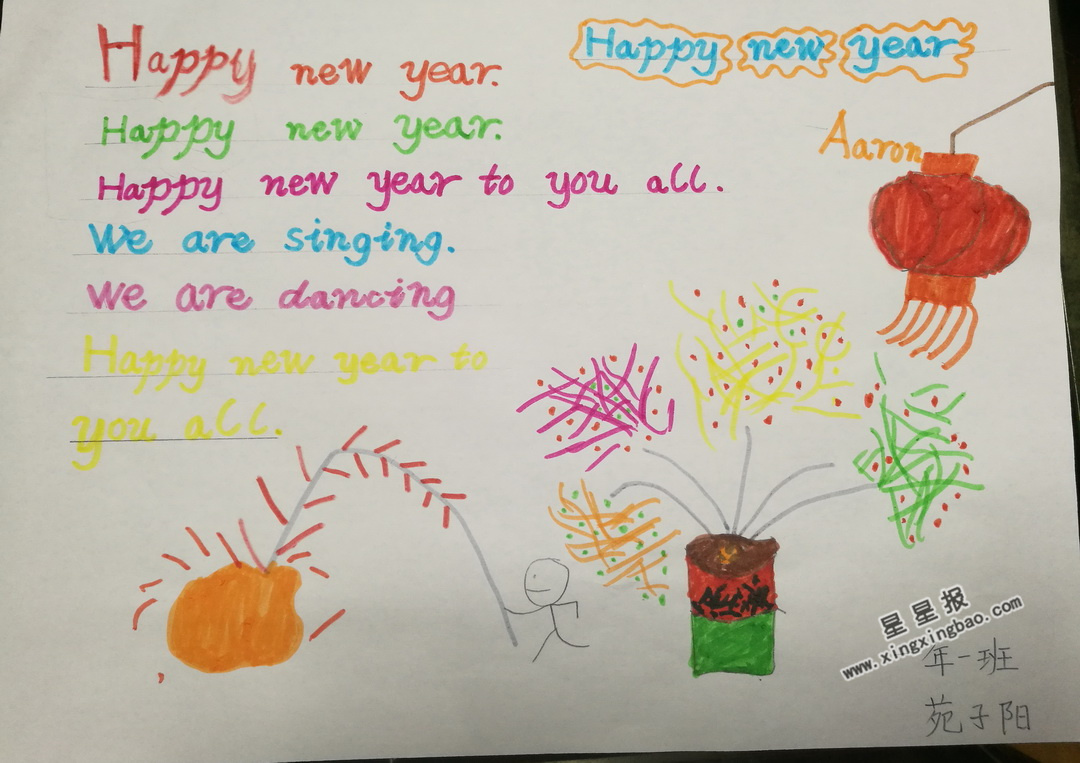 Happy new year.
Happy new year.
Happy new year to you all.
We are singing.
We are dancing
Happy new year to
you all.
Happy new year
Aaron
星星报
www.xingxingbao.com
年一班
苑子阳